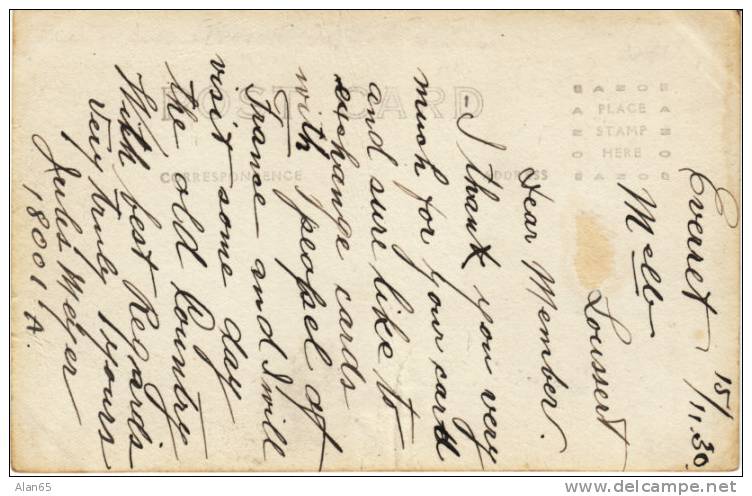 Everet 15/11.30.
Melle Loussert
Dear Member.
- I thank you very
much for your card
and sure like to
exchange cards
with peopel of
France and I will
visit some day
the old Country
With best Regards
Very truly Yours
Jules Meyer
18001 A.
POST CARD
CORRESPONDENCE
ADDRESS
PLACE
STAMP
HERE
Alan65
www.delcampe.net